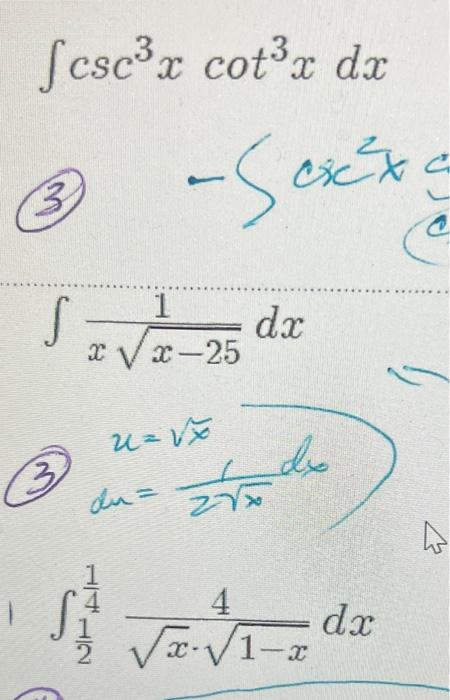 ∫csc³x cot³x dx
③ -∫ csc²x c
∫ 1/(x√(x-25)) dx
③ u = √x
du = 1/(2√x) dx
∫_{1/2}^{1/4} 4/(√x·√(1-x)) dx